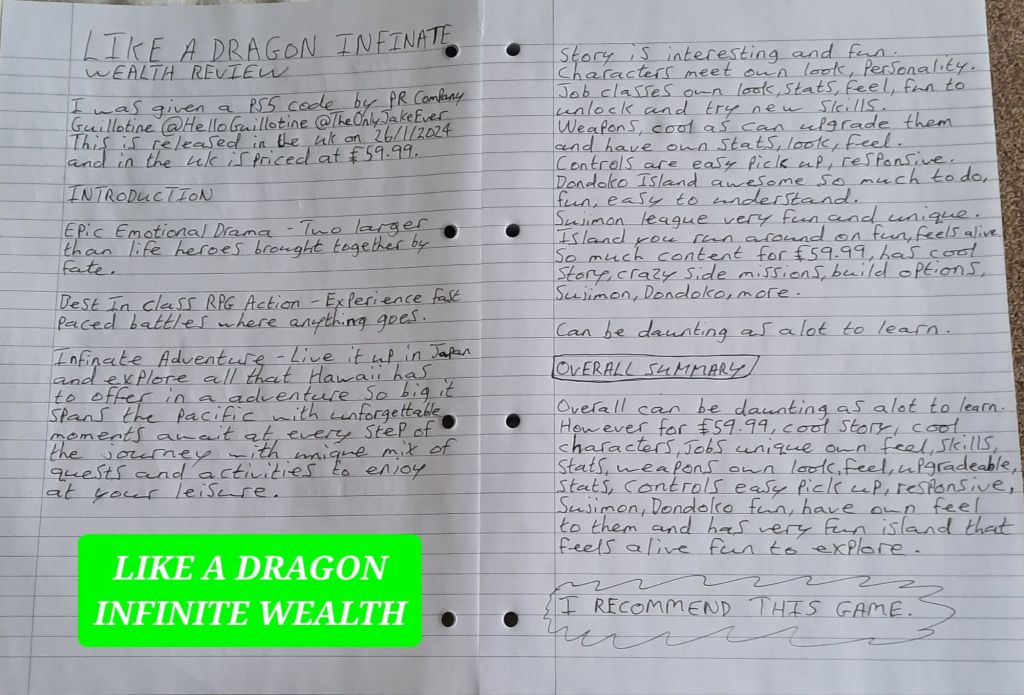 LIKE A DRAGON INFINATE
WEALTH REVIEW
I was given a PS5 code by PR Company
Guillotine @HelloGuillotine @TheOnlyJakeEver
This is released in the uk on 26/1/2024
and in the uk is priced at £59.99.
INTRODUCTION
Epic Emotional Drama - Two larger
than life heroes brought together by
fate.
Best In Class RPG Action - Experience fast
paced battles where anything goes.
Infinate Adventure - Live it up in Japan
and explore all that Hawaii has
to offer in a adventure so big it
spans the pacific with unforgettable
moments await at every step of
the journey with unique mix of
quests and activities to enjoy
at your leisure.
LIKE A DRAGON
INFINITE WEALTH
Story is interesting and fun.
Characters meet own look, Personality.
Job classes own look, stats, feel, fun to
unlock and try new skills.
Weapons, cool as can upgrade them
and have own stats, look, feel.
Controls are easy pick up, responsive.
Dondoko Island awesome so much to do,
fun, easy to understand.
Sujimon league very fun and unique.
Island you run around on fun, feels alive
So much content for £59.99, has cool
story, crazy side missions, build options,
Sujimon, Dondoko, more.
Can be daunting as alot to learn.
OVERALL SUMMARY
Overall can be daunting as alot to learn.
However for £59.99, cool story, cool
characters, Jobs unique own feel, skills,
stats, weapons own look, feel, upgradeable,
stats, controls easy pick up, responsive,
Sujimon, Dondoko fun, have own feel
to them and has very fun island that
feels alive fun to explore.
I RECOMMEND THIS GAME.